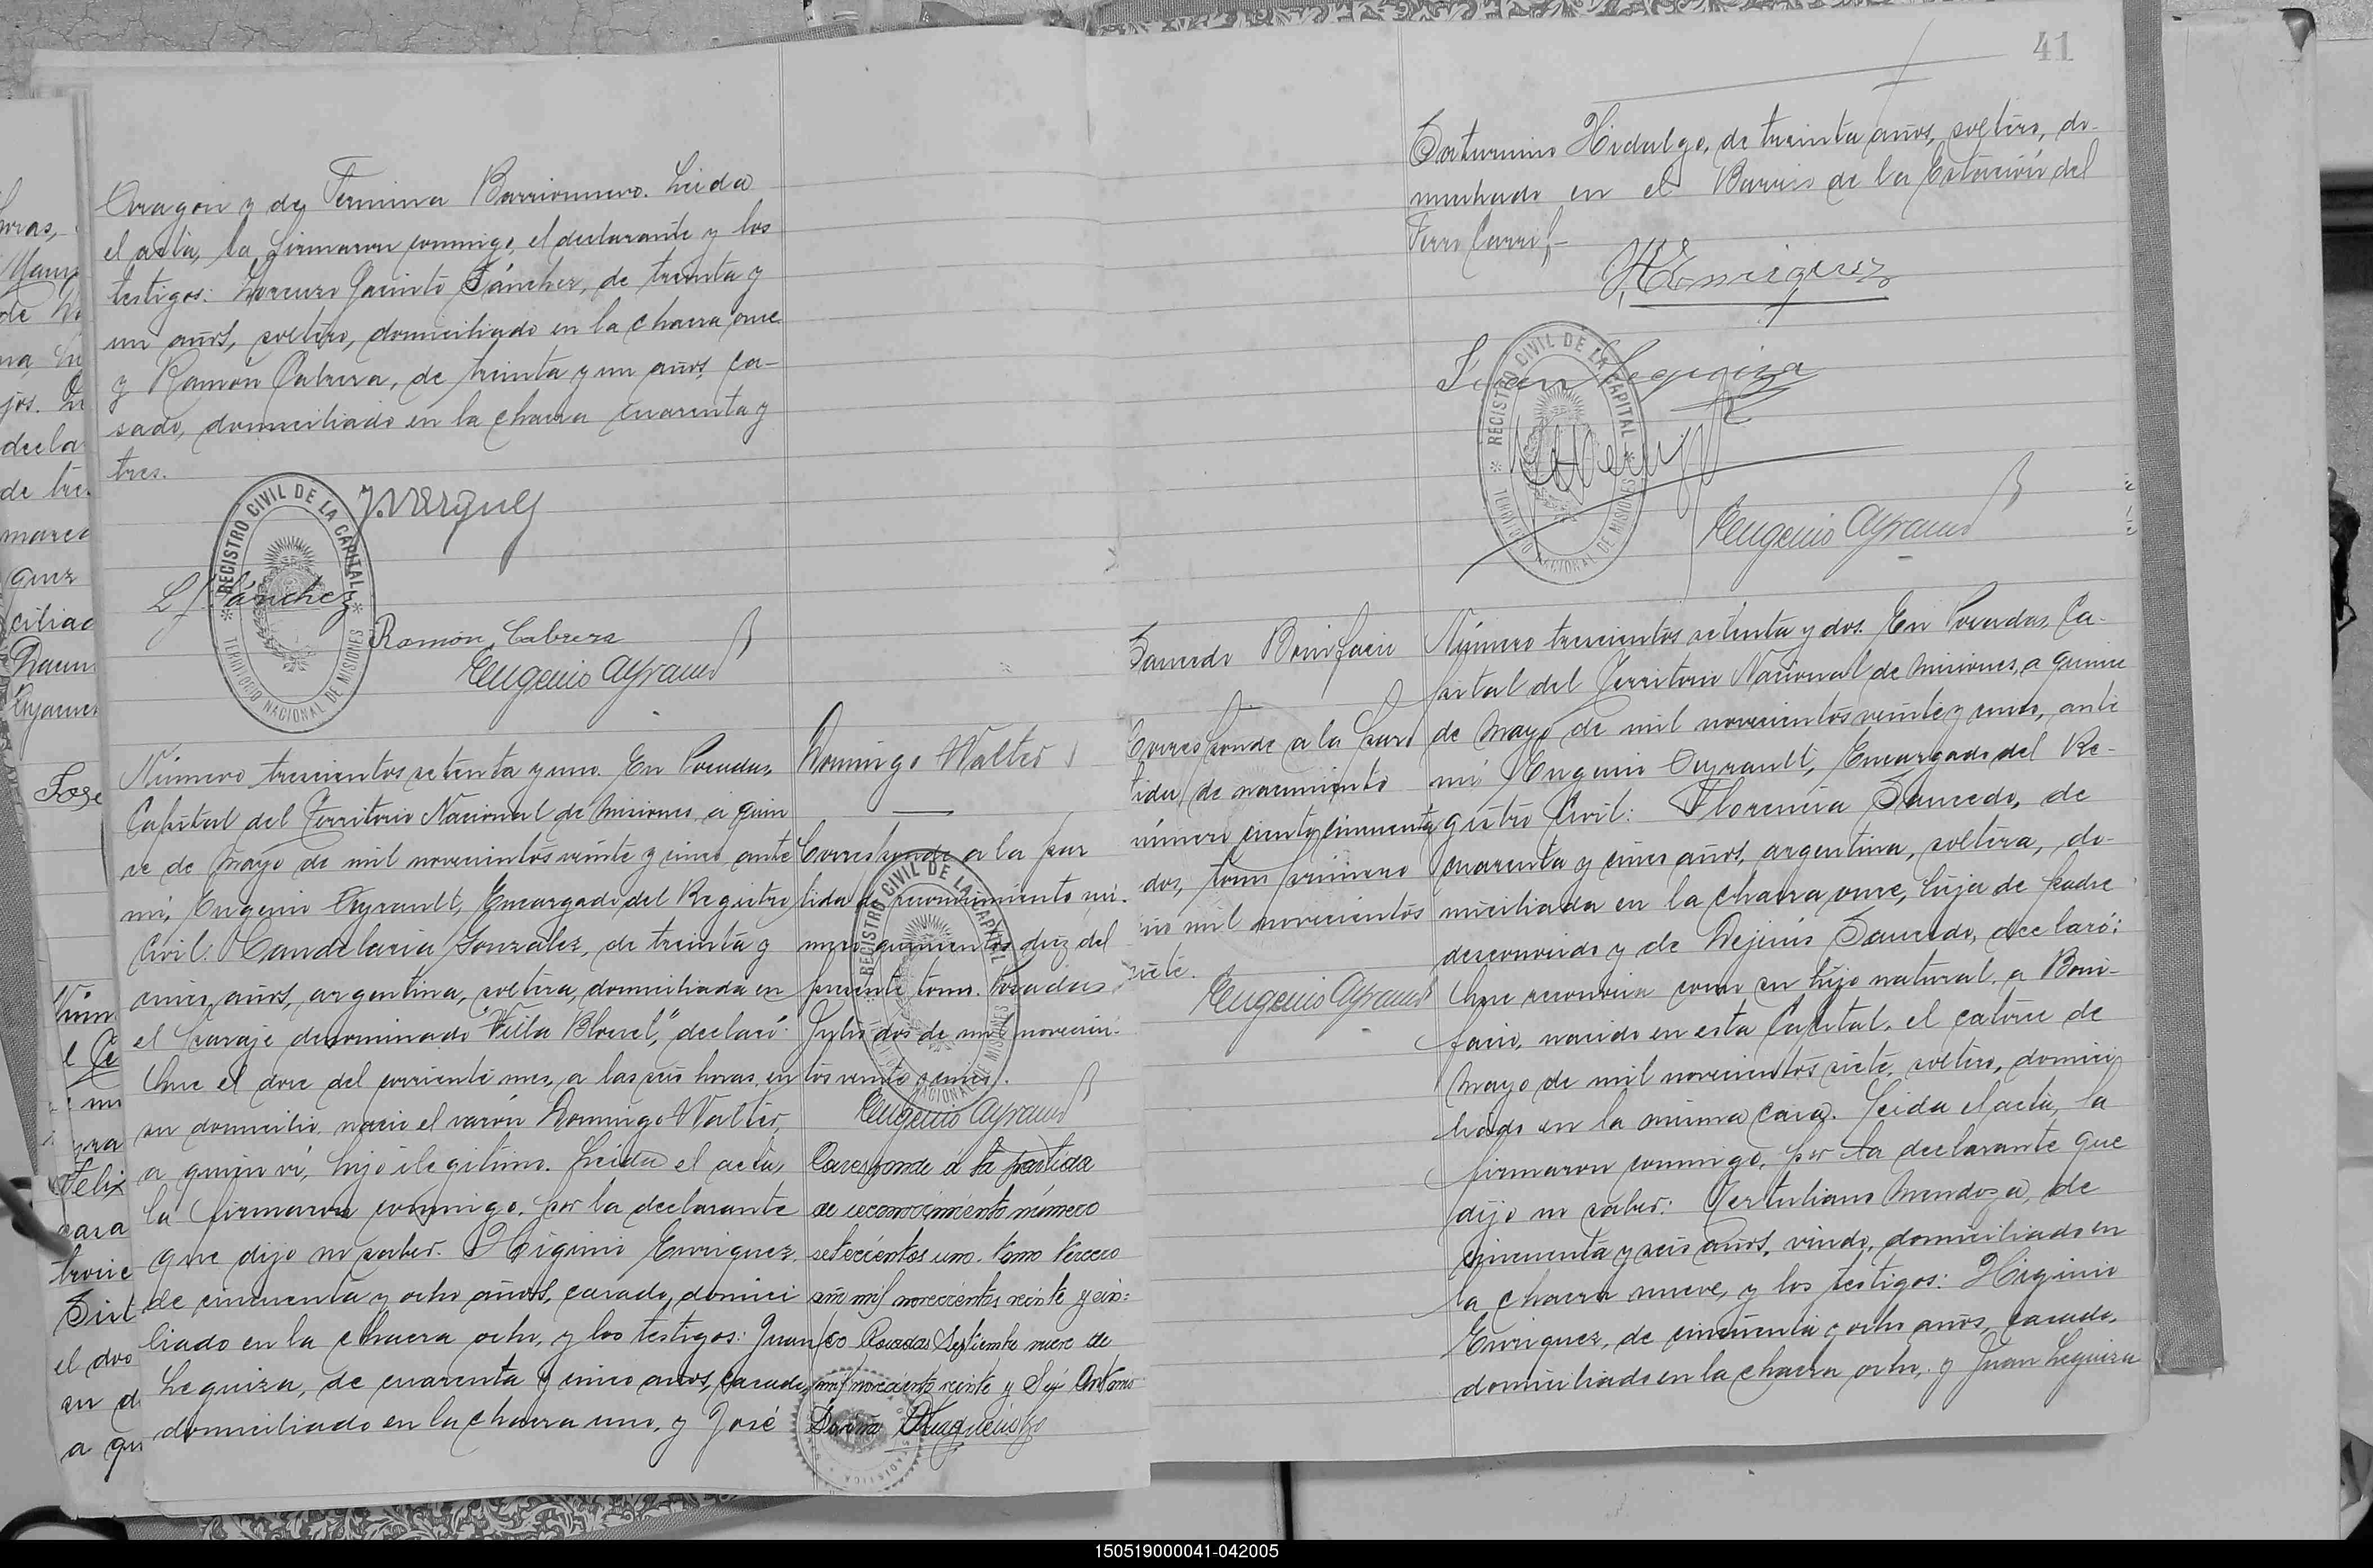 Aragón y de Fermina Barrionuevo. Leida
el acta, la firmaron conmigo, el declarante y los
testigos: Lorenzo Jacinto Sánchez, de treinta y
un años, soltero, domiciliado en la chacra once
y Ramón Cabrera, de treinta y un años, ca-
sado, domiciliado en la chacra cuarenta y
tres.
REGISTRO CIVIL DE LA CAPITAL
TERRITORIO NACIONAL DE MISIONES
L J Sánchez
Ramón Cabrera
Eugenio Ayrault
Número trescientos setenta y uno. En Posadas,
Capital del Territorio Nacional de Misiones, a quin
ce de Mayo de mil novecientos veinte y cinco, ante
mí, Eugenio Ayrault, Encargado del Registro
Civil: Candelaria González, de treinta y
cinco años, argentina, soltera, domiciliada en
el paraje denominado "Villa Blosset," declaró:
Que el doce del corriente mes, a las seis horas, en
su domicilio, nació el varón Domingo Walter,
a quien ví, hijo ilegitimo. Leida el acta,
la firmaron conmigo, por la declarante
que dijo no saber: Higinio Enriquez,
de cincuenta y ocho años, casado, domici
liado en la chacra ocho, y los testigos: Juan
Leguiza, de cuarenta y cinco años, casado,
domiciliado en la chacra uno, y José
Domingo Walter
Corresponde a la par
tida de reconocimiento nú-
mero quinientos diez del
presente tomo. Posadas
Julio dos de mil novecien-
tos veinte y cinco.
Eugenio Ayrault
REGISTRO CIVIL DE LA CAPITAL
NACIONAL DE MISIONES
Corresponde á la partida
de reconocimiento número
setecientos uno. tomo tercero
año mil novecientos veinte y cin=
co Posadas Septiembre nueve de
mil novecientos veinte y Seis Antonio
41
Saturnino Hidalgo, de treinta años, soltero, do-
miciliado en el Barrio de la Estación del
Ferro Carril.-
H Enriquez
Juan Leguiza
REGISTRO CIVIL DE LA CAPITAL
TERRITORIO NACIONAL DE MISIONES
Eugenio Ayrault
Saucedo Bonifacio
Corresponde a la par
tida de nacimiento
número ciento cincuenta y
dos, tomo primero
año mil novecientos
siete.
Eugenio Ayrault
Número trescientos setenta y dos. En Posadas, Ca-
pital del Territorio Nacional de Misiones, a quince
de Mayo de mil novecientos veinte y cinco, ante
mí, Eugenio Ayrault, Encargado del Re-
gistro Civil: Florencia Saucedo, de
cuarenta y cinco años, argentina, soltera, do-
miciliada en la chacra once, hija de padre
desconocido y de Dejesús Saucedo, declaró:
Que reconocia como su hijo natural, a Boni-
facio, nacido en esta Capital, el catorce de
Mayo de mil novecientos siete, soltero, domici
liado en la misma casa. Leida el acta, la
firmaron conmigo, por la declarante que
dijo no saber: Tertuliano Mendoza, de
cincuenta y seis años, viudo, domiciliado en
la chacra nueve, y los testigos: Higinio
Enriquez, de cincuenta y ocho años, casado,
domiciliado en la chacra ocho, y Juan Leguiza
150519000041-042005